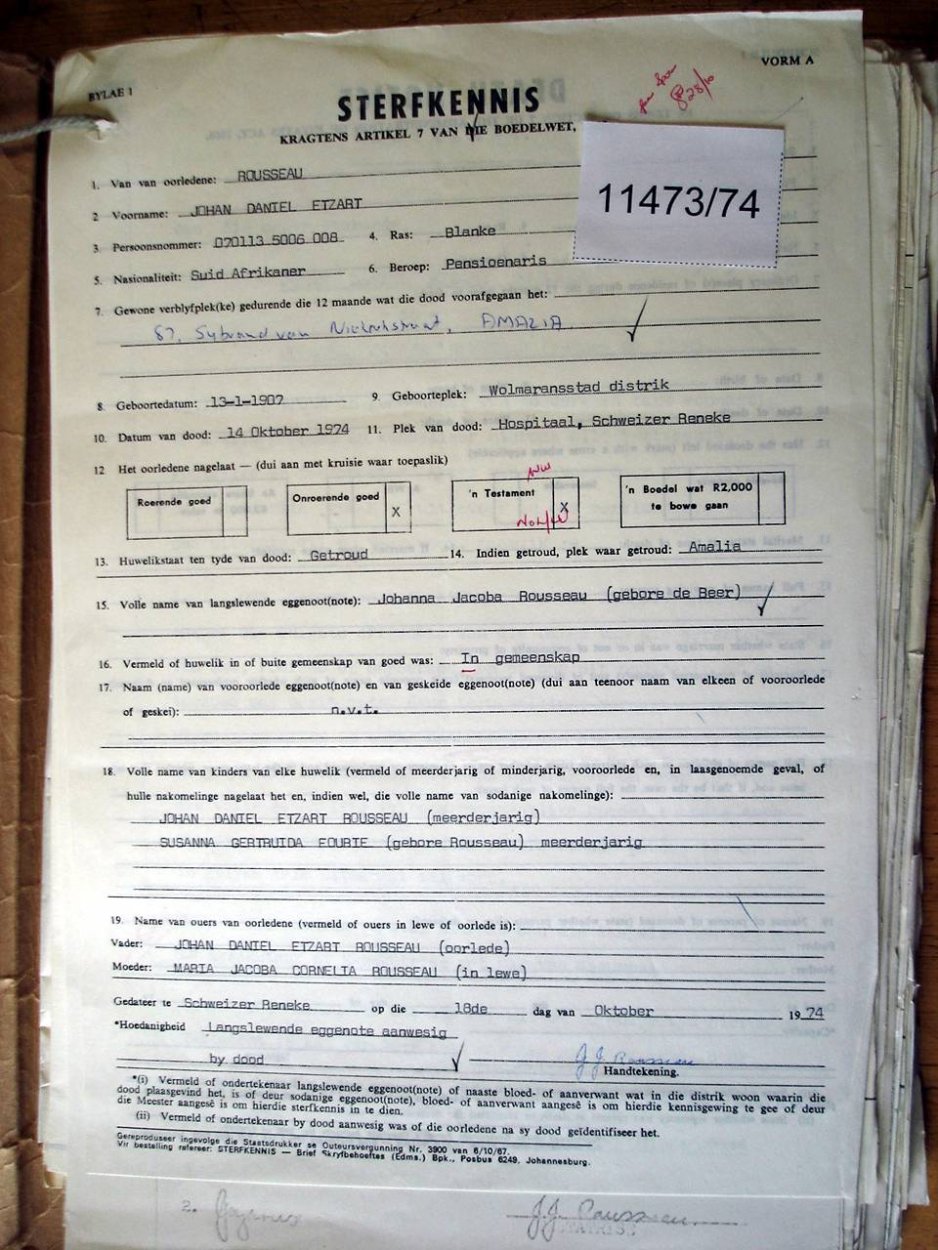 BYLAE 1
VORM A
28/10
STERFKENNIS
KRAGTENS ARTIKEL 7 VAN DIE BOEDELWET,
11473/74
1. Van van oorledene: ROUSSEAU
2 Voorname: JOHAN DANIEL ETZART
3 Persoonsnommer: 070113 5006 008 4. Ras: Blanke
5. Nasionaliteit: Suid Afrikaner 6. Beroep: Pensioenaris
7. Gewone verblyfplek(ke) gedurende die 12 maande wat die dood voorafgegaan het:
67, Sybrand van Niekerkstraat, AMALIA
8 Geboortedatum: 13-1-1907 9. Geboorteplek: Wolmaransstad distrik
10. Datum van dood: 14 Oktober 1974 11. Plek van dood: Hospitaal, Schweizer Reneke
12 Het oorledene nagelaat — (dui aan met kruisie waar toepaslik)
Roerende goed
Onroerende goed X
'n Testament X
'n Boedel wat R2,000 te bowe gaan
13. Huwelikstaat ten tyde van dood: Getroud 14. Indien getroud, plek waar getroud: Amalia
15. Volle name van langslewende eggenoot(note): Johanna Jacoba Rousseau (gebore de Beer)
16. Vermeld of huwelik in of buite gemeenskap van goed was: In gemeenskap
17. Naam (name) van vooroorlede eggenoot(note) en van geskeide eggenoot(note) (dui aan teenoor naam van elkeen of vooroorlede
of geskei): n.v.t.
18. Volle name van kinders van elke huwelik (vermeld of meerderjarig of minderjarig, vooroorlede en, in laasgenoemde geval, of
hulle nakomelinge nagelaat het en, indien wel, die volle name van sodanige nakomelinge):
JOHAN DANIEL ETZART ROUSSEAU (meerderjarig)
SUSANNA GERTRUIDA FOURIE (gebore Rousseau) meerderjarig
19. Name van ouers van oorledene (vermeld of ouers in lewe of oorlede is):
Vader: JOHAN DANIEL ETZART ROUSSEAU (oorlede)
Moeder: MARIA JACOBA CORNELIA ROUSSEAU (in lewe)
Gedateer te Schweizer Reneke op die 18de dag van Oktober 1974
*Hoedanigheid Langslewende eggenote aanwesig
by dood J J Rousseau
Handtekening.
*(i) Vermeld of ondertekenaar langslewende eggenoot(note) of naaste bloed- of aanverwant wat in die distrik woon waarin die
dood plaasgevind het, is of deur sodanige eggenoot(note), bloed- of aanverwant aangesê is om hierdie kennisgewing te gee of deur
die Meester aangesê is om hierdie sterfkennis in te dien.
(ii) Vermeld of ondertekenaar by dood aanwesig was of die oorledene na sy dood geïdentifiseer het.
Gereproduseer ingevolge die Staatsdrukker se Outeursvergunning Nr. 3900 van 6/10/67.
Vir bestelling refereer: STERFKENNIS — Brief Skryfbehoeftes (Edms.) Bpk., Posbus 6249, Johannesburg.
2. J.J. Rousseau